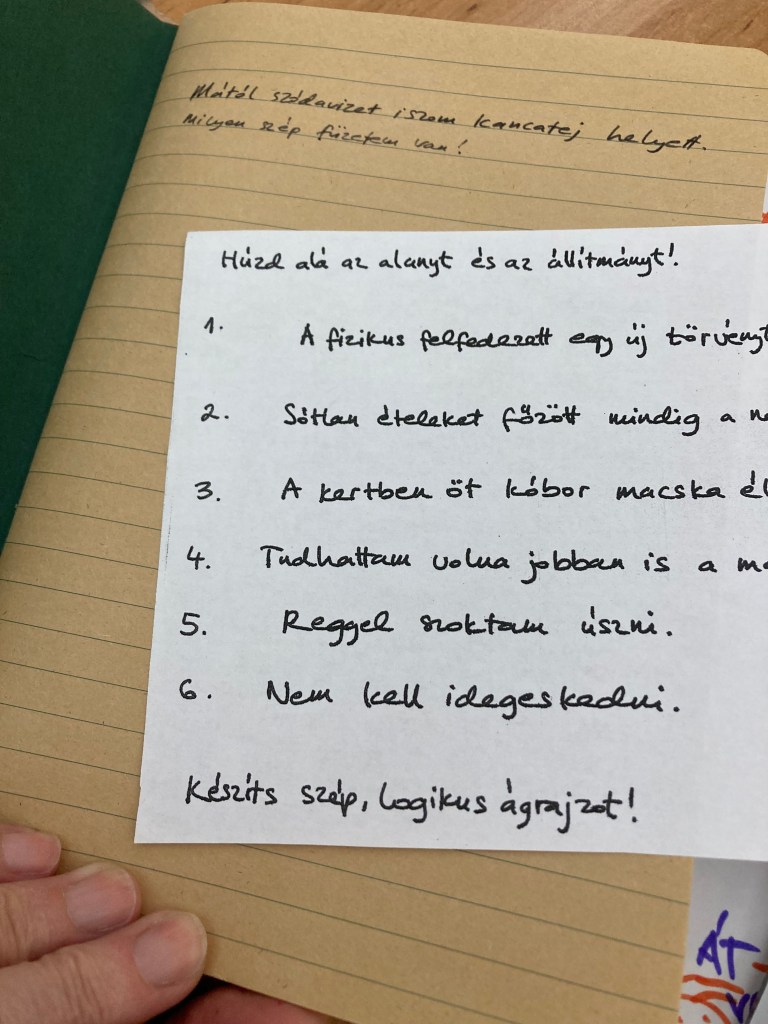 Mától szódavizet iszom kancatej helyett.
Milyen szép füzetem van!
Húzd alá az alanyt és az állítmányt!
1. A fizikus felfedezett egy új törvényt
2. Sótlan ételeket főzött mindig a
3. A kertben öt kóbor macska
4. Tudhattam volna jobban is a
5. Reggel szoktam úszni.
6. Nem kell idegeskedni.
Készíts szép, logikus ágrajzot!
ÁT